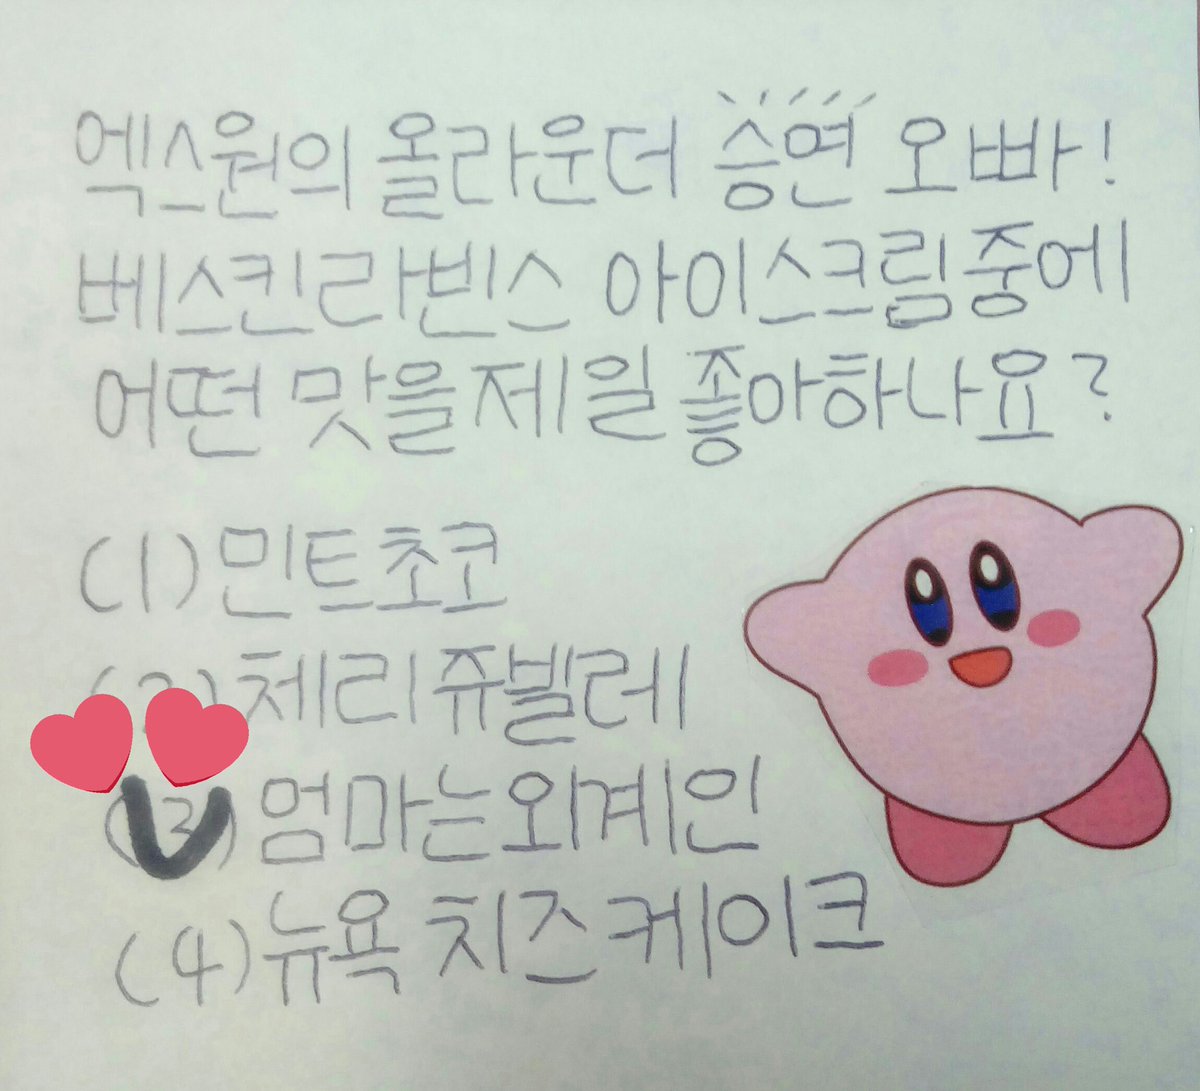 엑스원의 올라운더 승연 오빠!
베스킨라빈스 아이스크림 중에
어떤 맛을 제일 좋아하나요?
(1) 민트초코
(2) 체리쥬빌레
(3) 엄마는외계인
(4) 뉴욕 치즈케이크